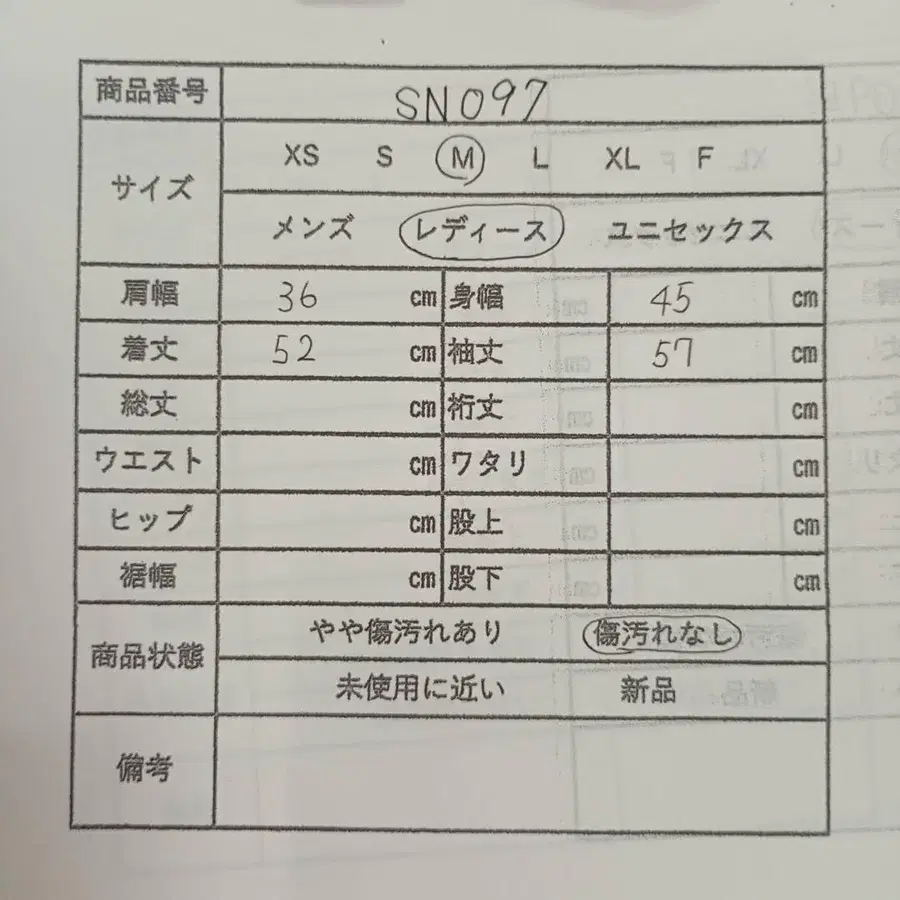 商品番号 SN097
サイズ XS S M L XL F
メンズ レディース ユニセックス
肩幅 36 cm 身幅 45 cm
着丈 52 cm 袖丈 57 cm
総丈 cm 裄丈 cm
ウエスト cm ワタリ cm
ヒップ cm 股上 cm
裾幅 cm 股下 cm
商品状態 やや傷汚れあり 傷汚れなし
未使用に近い 新品
備考